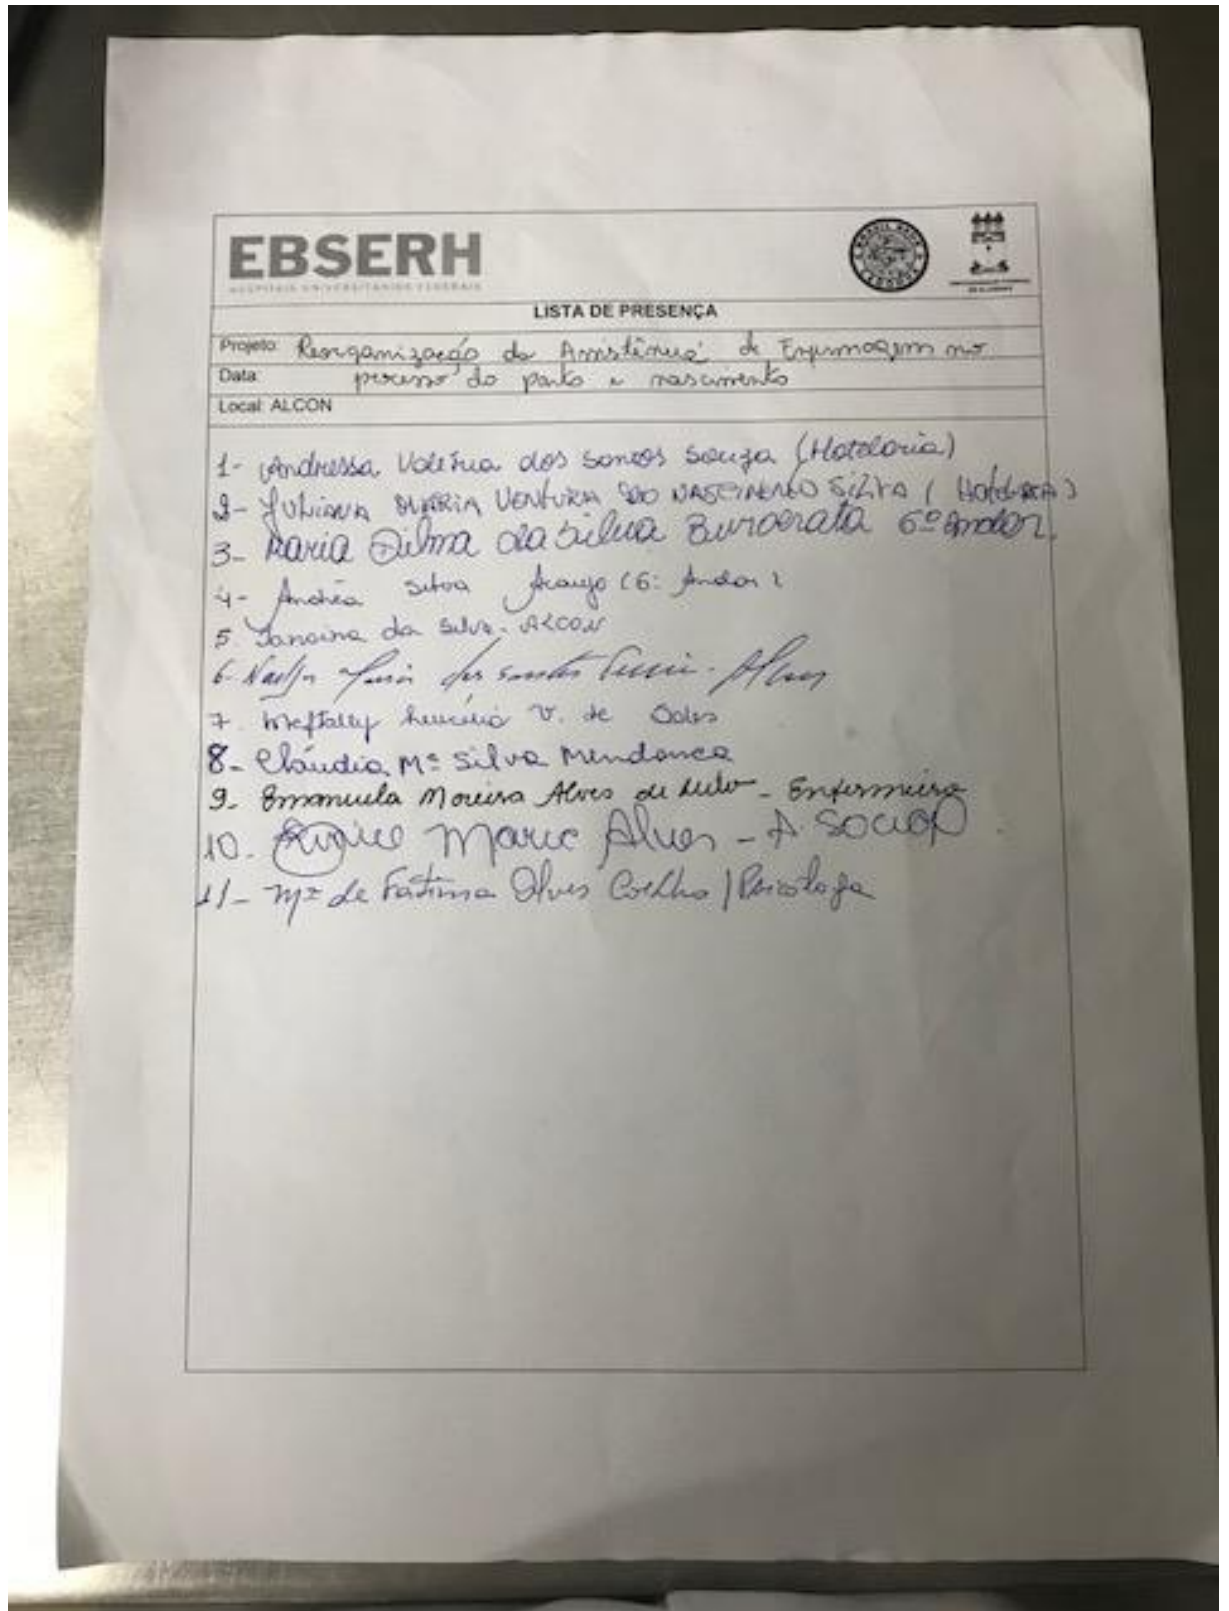 EBSERH
HOSPITAIS UNIVERSITÁRIOS FEDERAIS
LISTA DE PRESENÇA
Projeto: Reorganização da Assistência de Enfermagem no
Data: processo do parto e nascimento
Local: ALCON
1- Andressa Valéria dos Santos Souza (Hotelaria)
2- JULIANA MARIA VENTURA DO NASCIMENTO SILVA (Hotelaria)
3- Maria Dilma da Silva Burocrata 6º Andar
4- Andréa Silva Araujo (6º Andar)
5. Janaina da Silva - ALCON
6- Maria dos Santos - Alcon
7. V. de Sales
8- Cláudia Mª Silva Mendonca
9- Emanuela Moreira Alves de Melo - Enfermeira
10. Maria Alves - A. Social
11- Mª de Fátima Alves Coelho / Psicóloga